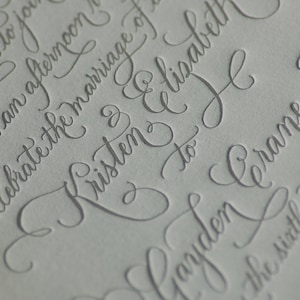 to join
an afternoon
celebrate the marriage of
Kristen Elizabeth
to
Hayden Crans
the sixth